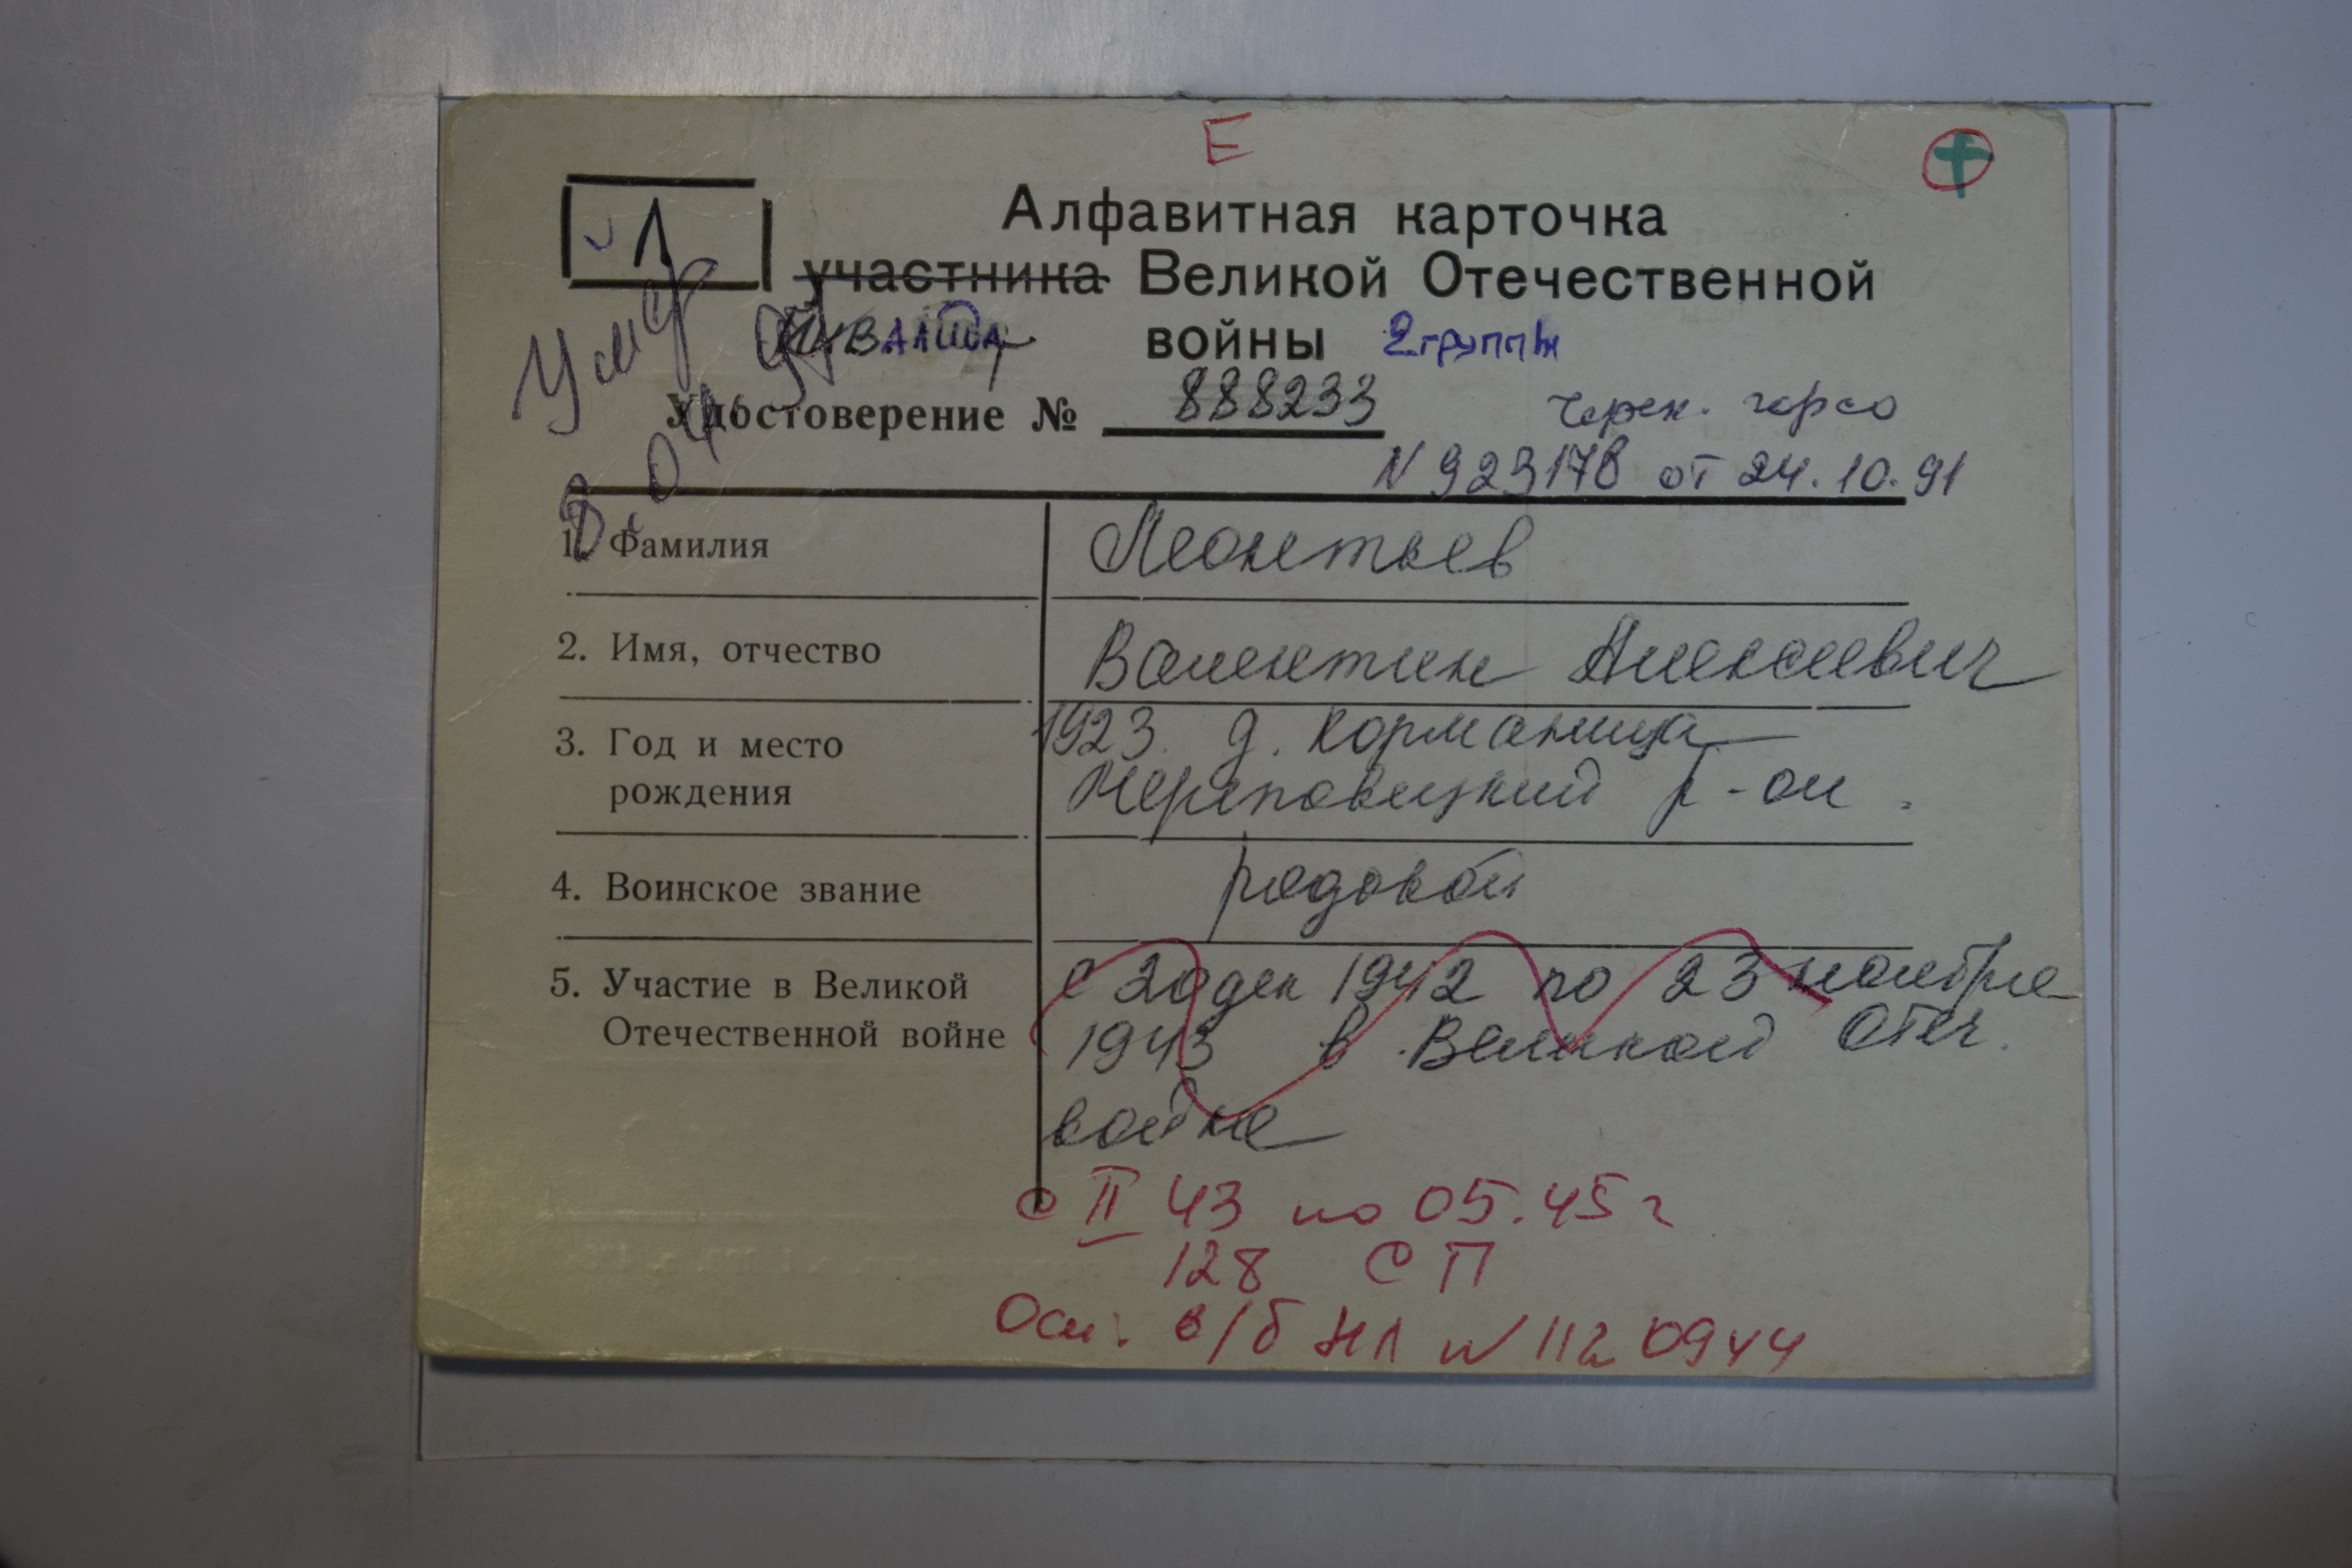 Е
Л
Алфавитная карточка
участника Великой Отечественной
инвалида войны 2 группы
Умер 8.04.95
Удостоверение № 888233
Череп. горсо
N 923178 от 24.10.91
1. Фамилия Леонтьев
2. Имя, отчество Валентин Алексеевич
3. Год и место 1923 д. Корманица
рождения Череповецкий р-он.
4. Воинское звание рядовой
5. Участие в Великой с 20 дек 1942 по 23 ноября
Отечественной войне 1943 в Великой Отеч.
войне
с II 43 по 05.45 г
128 СП
Осн: в/б НЛ N 1120944